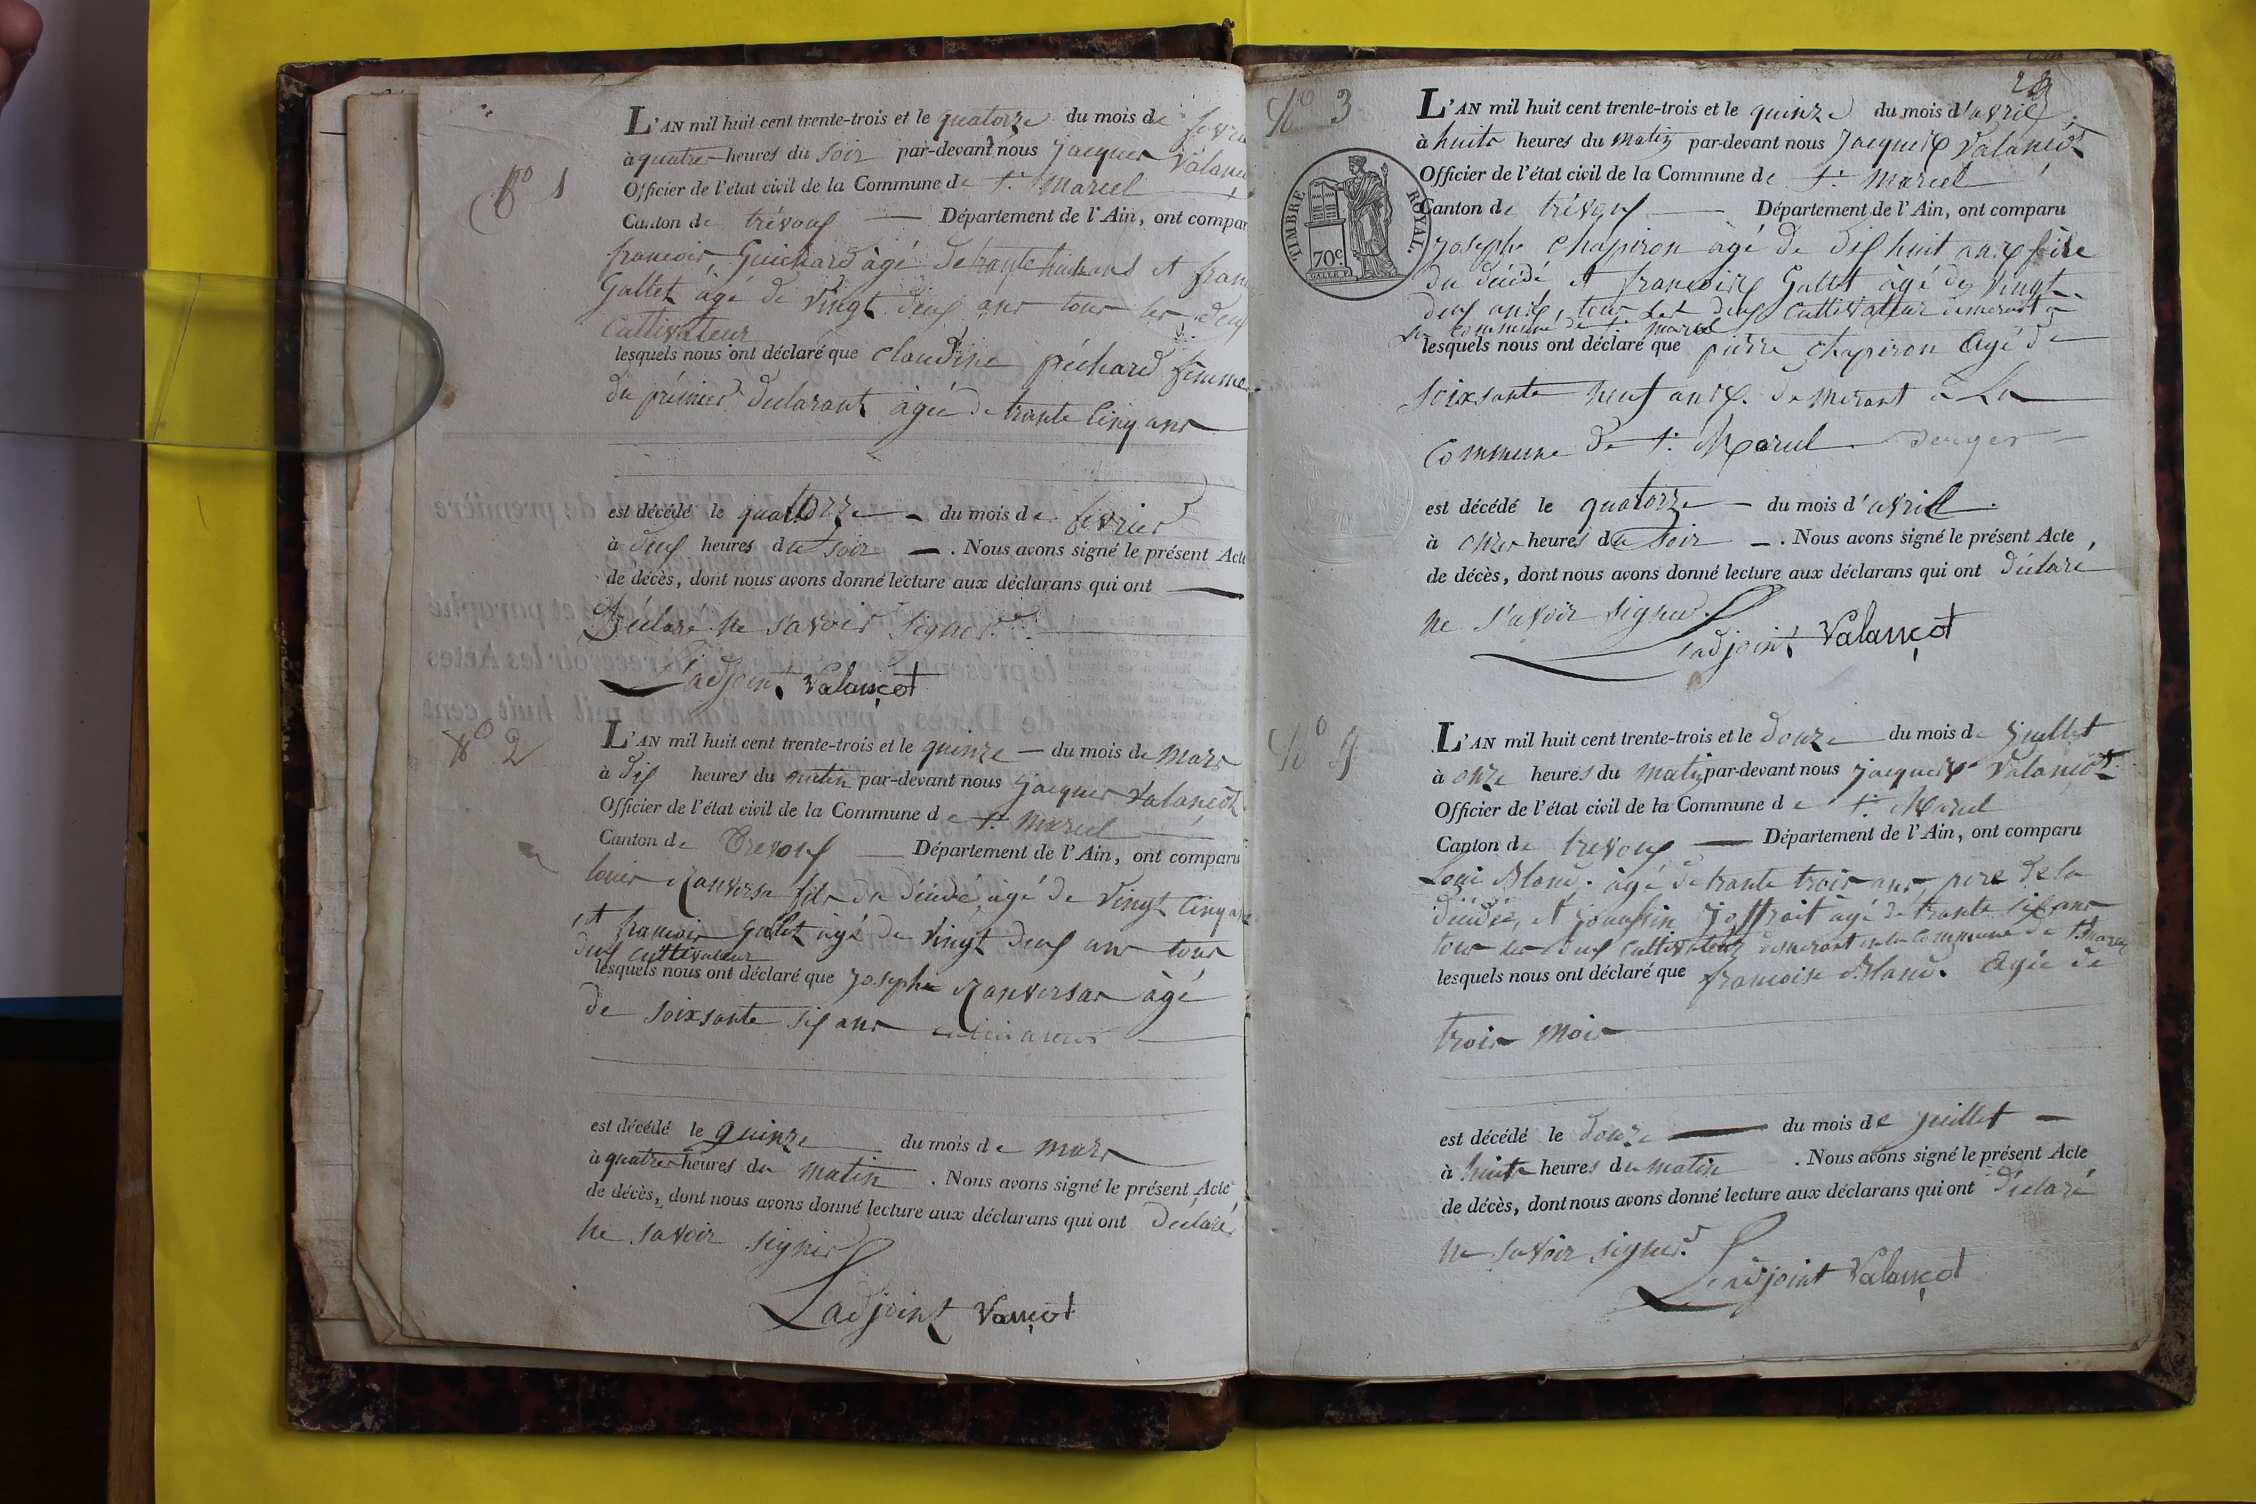 N.o 1
L'AN mil huit cent trente-trois et le quatorze du mois de fevri
à quatre heures du soir par-devant nous jacques Valanço
Officier de l'état civil de la Commune de St. Marcel
Canton de trévoux Département de l'Ain, ont compar
francois Guichard àgé de trante huit ans et fran
Gallet àgé de vingt deux ans tous les deux
cultivateur
lesquels nous ont déclaré que claudine péchard femme
du prémier declarant àgée de trante cinq ans
est décédé le quatorze du mois de fevrier
à deux heures du soir . Nous avons signé le présent Acte
de décès, dont nous avons donné lecture aux déclarans qui ont
Déclaré ne savoir signer.
L'adjoint Valançot
N.o 2
L'AN mil huit cent trente-trois et le quinze du mois de mars
à dix heures du matin par-devant nous jacques Valançot
Officier de l'état civil de la Commune de St. Marcel
Canton de Trevoux Département de l'Ain, ont comparu
louis Ranverse fils du décédé, àgé de vingt cinq ans
et francois Gallet àgé de vingt deux ans tous
deux cultivateur
lesquels nous ont déclaré que josephe Ranversar àgé
de soixsante six ans cultivateur
est décédé le quinze du mois de mars
à quatre heures du matin . Nous avons signé le présent Acte
de décès, dont nous avons donné lecture aux déclarans qui ont declaré
ne savoir signer
L'adjoint Vançot
29
N.o 3
L'AN mil huit cent trente-trois et le quinze du mois d'avril
à huits heures du matin par-devant nous jacques Valançot
Officier de l'état civil de la Commune de St. Marcel
Canton de trévoux Département de l'Ain, ont comparu
TIMBRE ROYAL.
70c.
josephe chapiron àgé de dix huit ans fils
du décédé et francois Gallet àgé de vingt
deux ans, tous les deux cultivateur demerant a
la commune de St. marcel
lesquels nous ont déclaré que pierre chapiron Agé de
soixsante neuf ans. demerant a La
commune de St. Marcel berger
est décédé le quatorze du mois d'avril
à onze heures du soir . Nous avons signé le présent Acte
de décès, dont nous avons donné lecture aux déclarans qui ont déclaré
ne s'avoir signer.
L'adjoint Valançot
N.o 4
L'AN mil huit cent trente-trois et le douze du mois de juillet
à onze heures du matin par-devant nous jacques Valançot
Officier de l'état civil de la Commune de St. Marcel
Canton de trevoux Département de l'Ain, ont comparu
Loui Blanc. àgé de trante trois ans, pere de la
décédée, et joffroit àgé de trante six ans
tous les deux cultivateur demerant en la commune de St marcel
lesquels nous ont déclaré que francoise Blanc. Agée de
trois mois
est décédé le douze du mois de juillet
à huits heures du matin . Nous avons signé le présent Acte
de décès, dont nous avons donné lecture aux déclarans qui ont déclaré
ne savoir signer.
L'adjoint Valançot